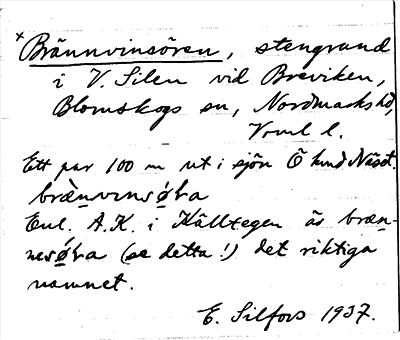 *Brännvinsören, stengrund
i V. Silen vid Breviken,
Blomskogs sn, Nordmarks hd,
Vrml l.
Ett par 100 m ut i sjön Ö hund Näset.
bræ̀nvinsø̱̀ra
Enl. A.K. i Källtegen är bræn-
nesø̱̀ra (se detta!) det riktiga
namnet.
E. Silfors 1937.